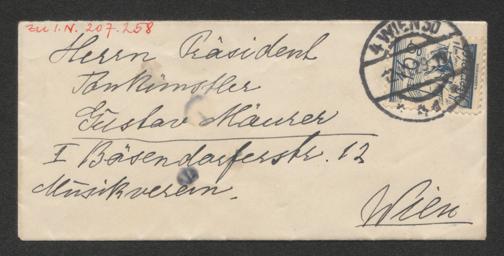 zu I.N. 207.258
4 WIEN 50
Herrn Präsident
Tonkünstler
Gustav Mäurer
I Bösendorferstr. 12
Musikverein.
Wien